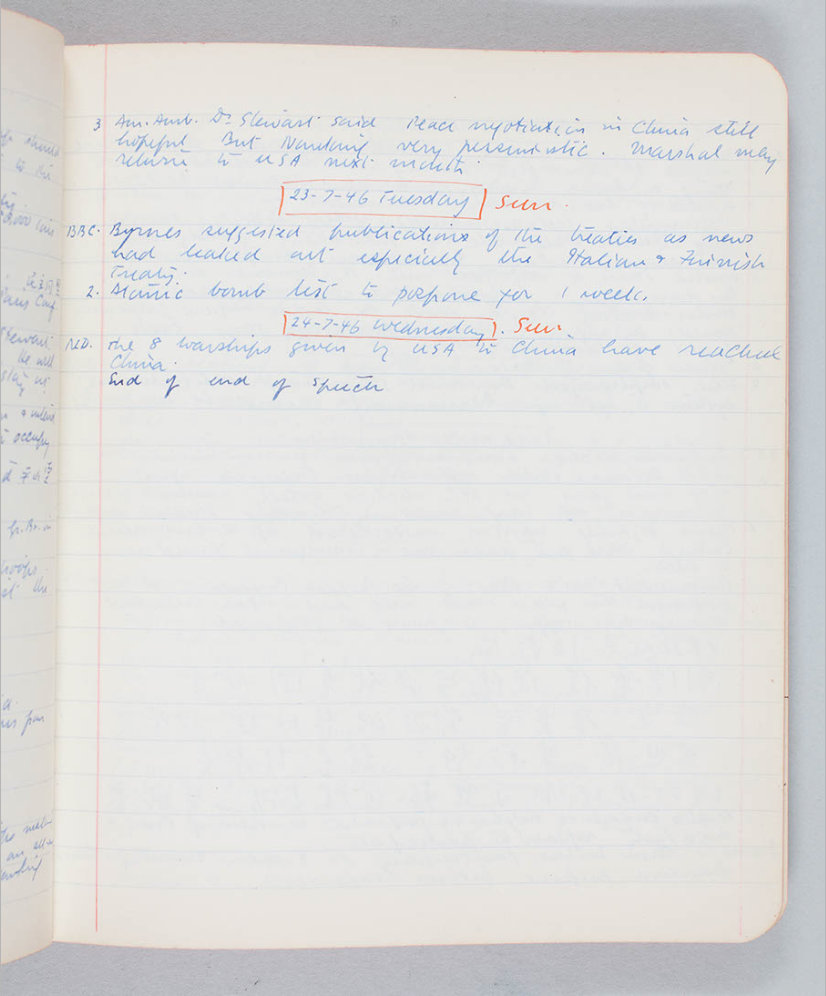 3 Am. Amb. Dr. Stewart said Peace negotiation in China still
hopeful But Nanking very pessimistic. Marshal may
return to USA next month.
23-7-46 Tuesday Sun.
BBC. Byrnes suggested publications of the treaties as news
had leaked out especially the Italian & Finnish
Treaty.
2. Atomic bomb test to pospone for 1 week.
24-7-46 Wednesday. Sun
N.D. the 8 warships given by USA to China have reached
China.
End of end of speech
should
to the
Paris Conf
Stewart
he will
occupy
Gr. Br. in
troops
the